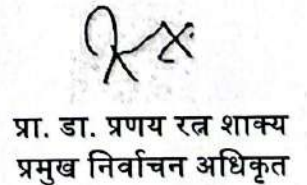 प्रा. डा. प्रणय रत्न शाक्य
प्रमुख निर्वाचन अधिकृत